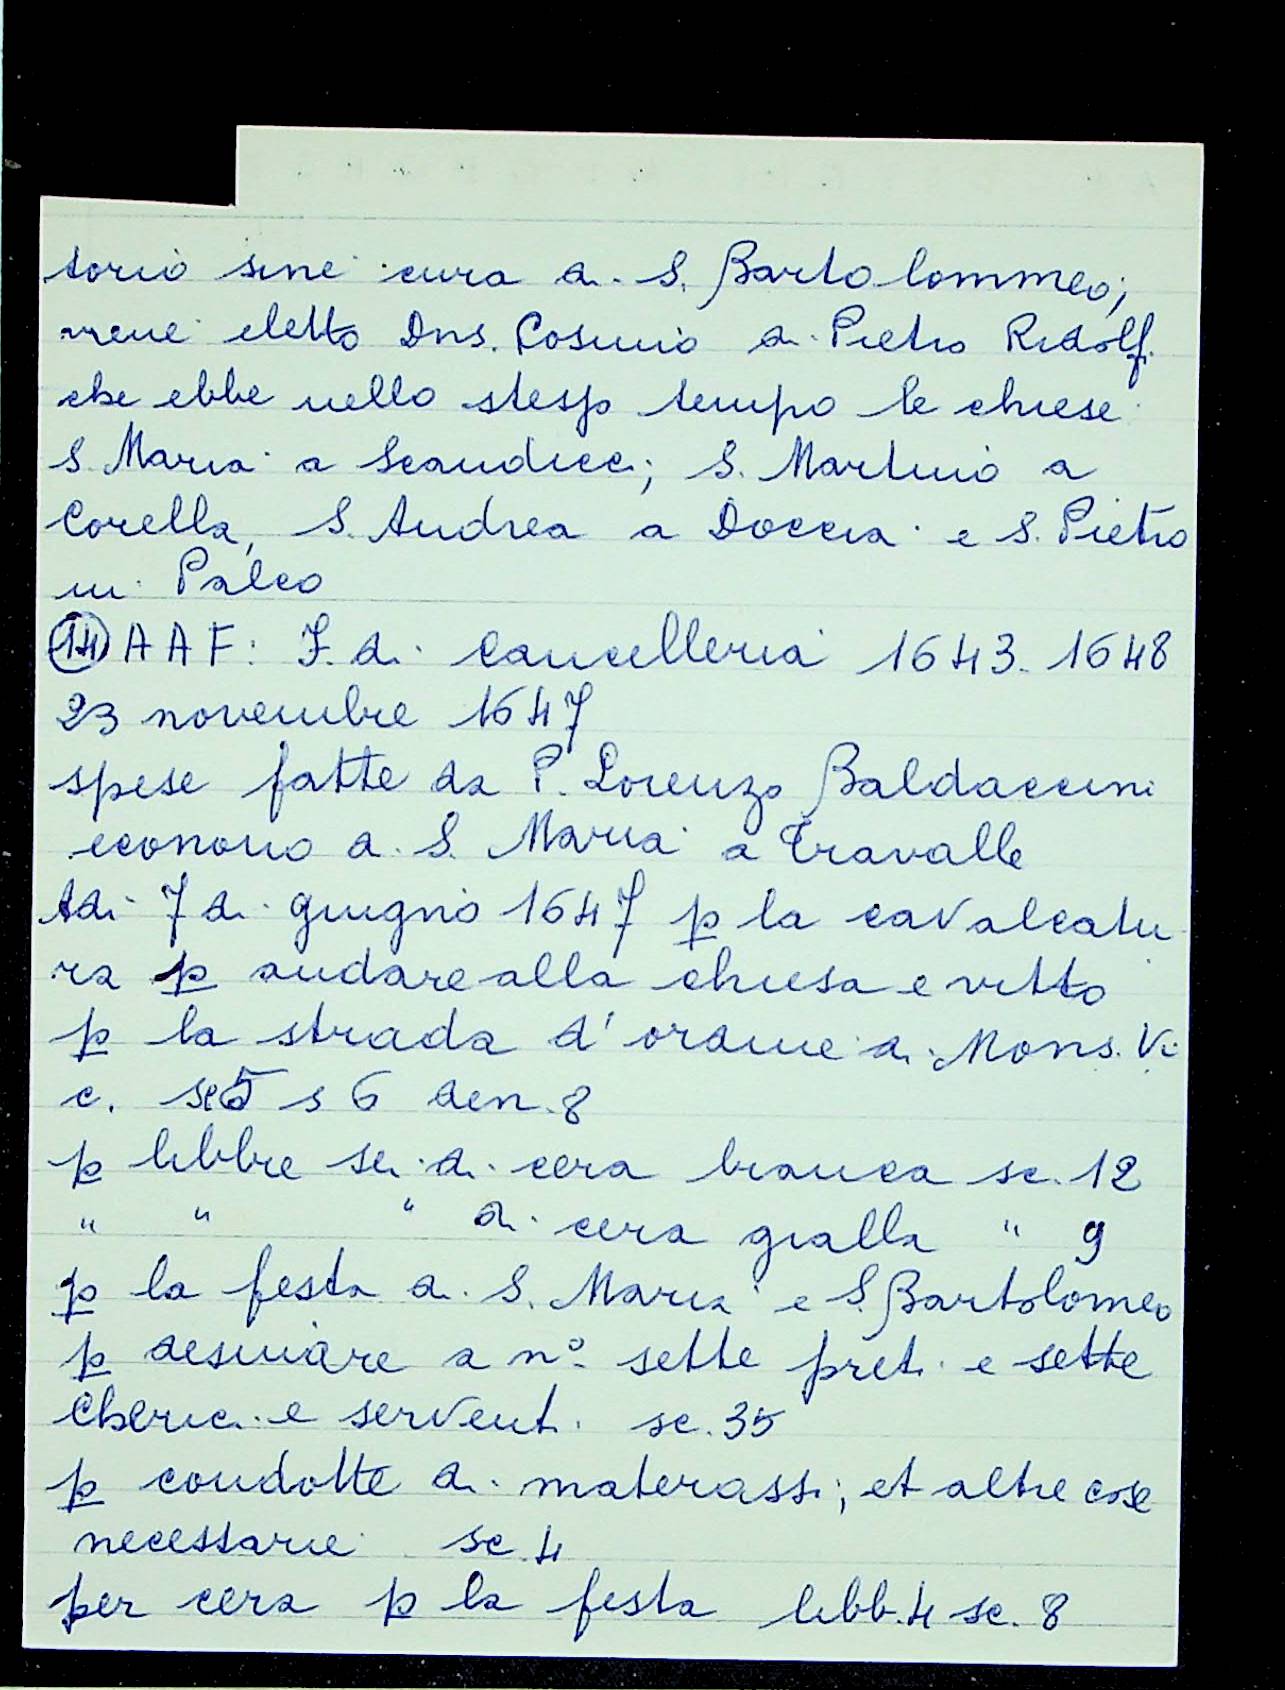 torio sine cura di S. Bartolommeo;
viene eletto Dns. Cosimo di Pietro Ridolfi
che ebbe nello stesso tempo le chiese
S. Maria a Scandicci; S. Martino a
Corella, S. Andrea a Doccia e S. Pietro
in Palco
(14) A A F: F. di Cancelleria 1643-1648
23 novembre 1647
spese fatte da P. Lorenzo Baldaccini
economo di S. Maria a Travalle
Adi 7 di giugno 1647 p la cavalcatu
ra p andare alla chiesa e vitto
p la strada d'ordine di Mons. Vi
c. sc5 s 6 den. 8
p libbre sei di cera bianca sc. 12
" " " di cera gialla " 9
p la festa di S. Maria e S. Bartolomeo
p desinare a n° sette preti e sette
Cherici e serventi sc. 35
p condotte di materassi; et altre cose
necessarie sc. 4
per cera p la festa libb. 4 sc. 8